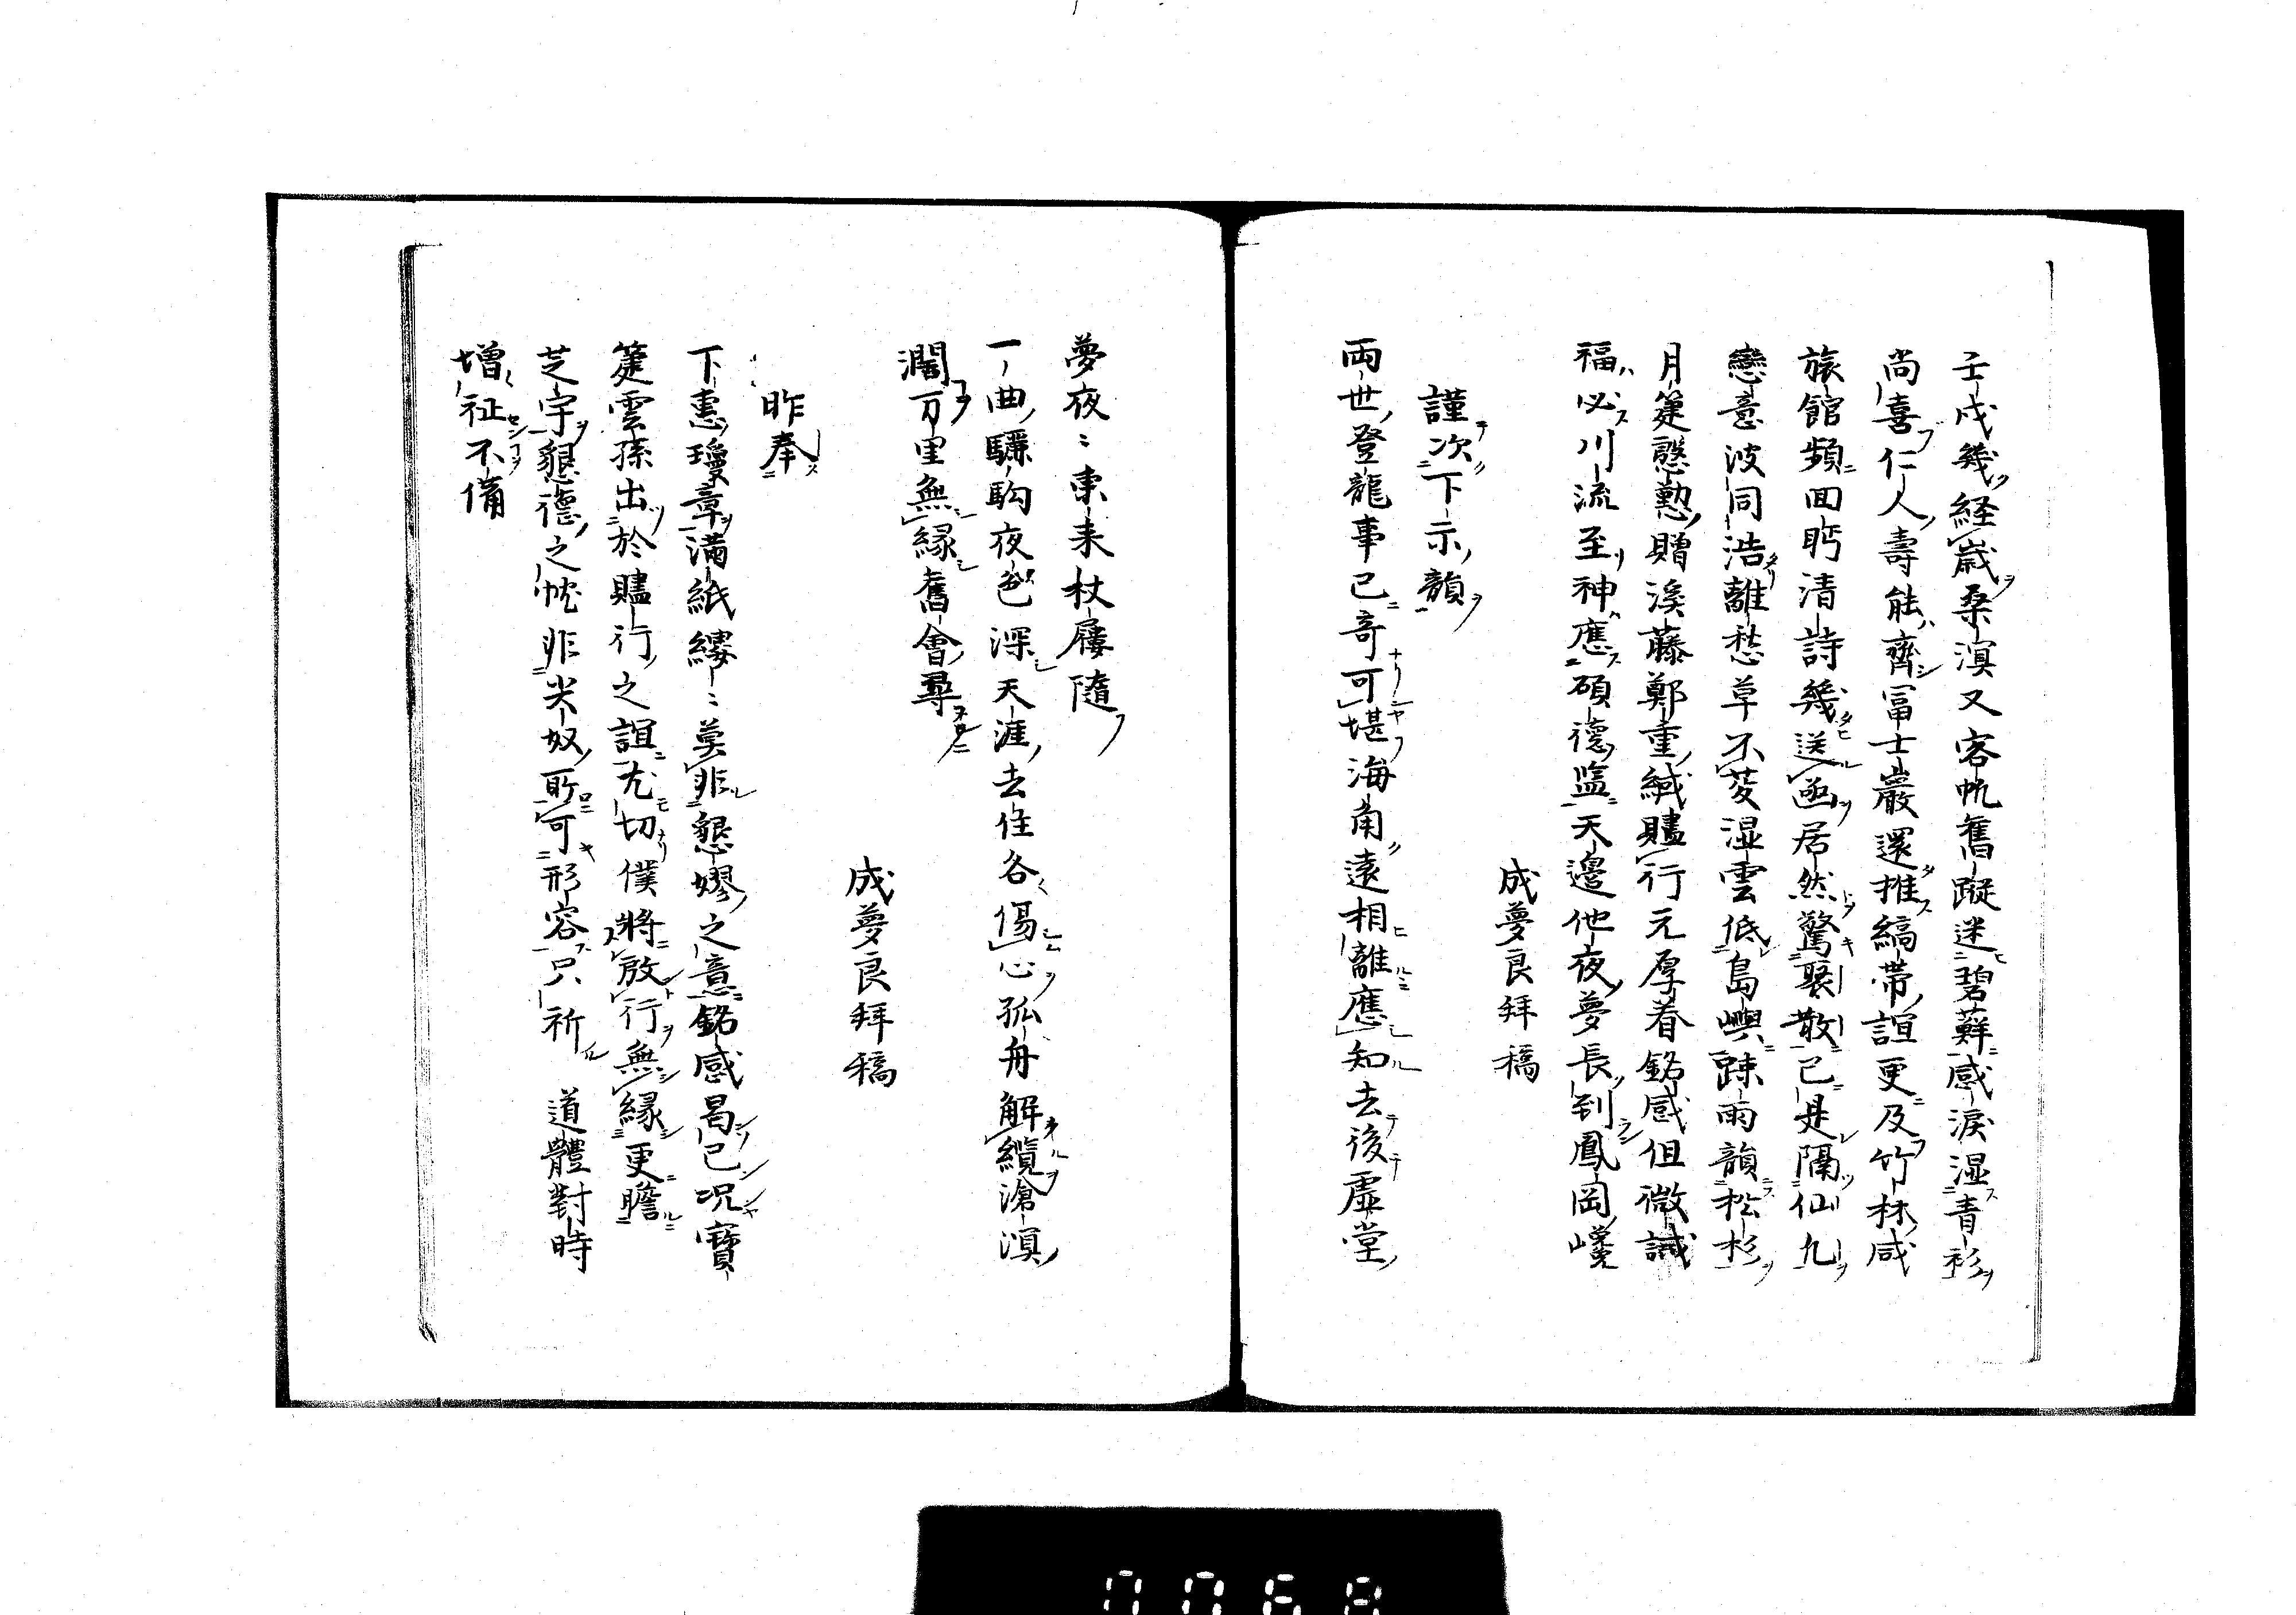 壬戌幾経歳桑溟又客帆舊蹤迷碧蘚感淚湿青衫
尚喜仁人壽能齊冨士巖還推縞帶誼更及竹林咸
旅館頻回眄清詩幾送函居然驚聚散已是隔仙凡
戀意波同浩離愁草不芟湿雲低島嶼踈雨韻松杉
月箑慇懃贈溪藤鄭重緘贐行元厚眷銘感但微諴
福必川流至神應碩德監天邊他夜夢長到鳳岡巉
成夢良拜稿
謹次下示韻
両世登龍事已奇可堪海角遠相離應知去後虛堂
夢夜〻東来杖屨隨
一曲驪駒夜色深天涯去住各傷心孤舟解纜滄溟
濶万里無縁舊會尋
成夢良拜稿
昨奉
下惠瓊章滿紙縷〻莫非懇嫪之意銘感曷已况寶
箑雲孫出於贐行之誼尤切僕將啟行無縁更瞻
芝宇懇德之忱非尖奴所可形容只祈 道體對時
增祉不備